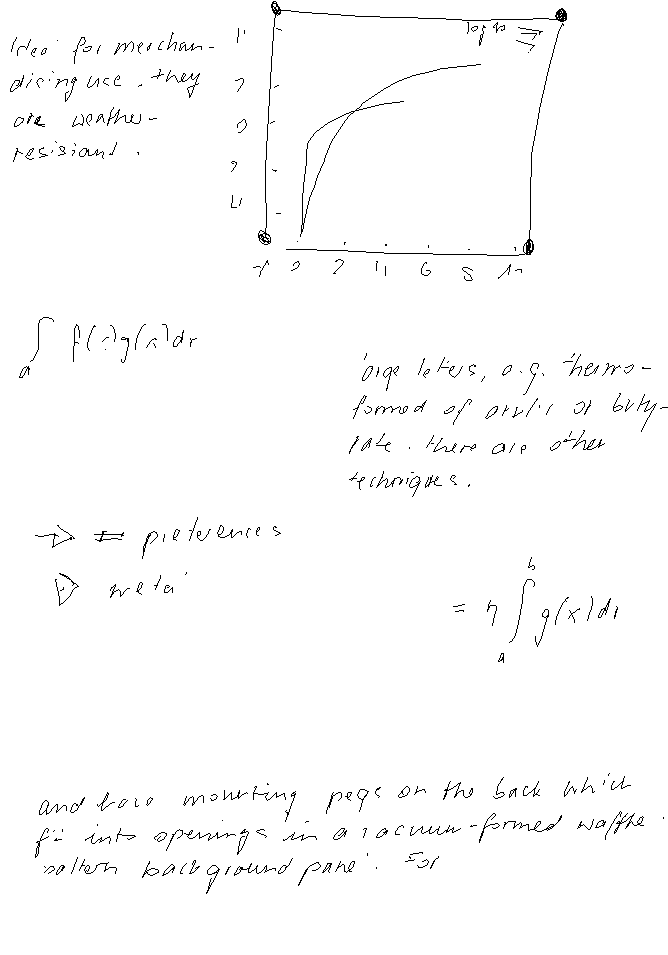 Ideal for merchan-
dising use. they
are weather-
resistant.
0 2 6 8
∫ f(x)g(x)dx
a
large letters, e.g. thermo-
formed of acrylic or buty-
rate. there are other
techniques.
preferences
metal
b
= η ∫ g(x)dx
a
and have mounting pegs on the back which
fit into openings in a vacuum-formed waffle
pattern background panel. For